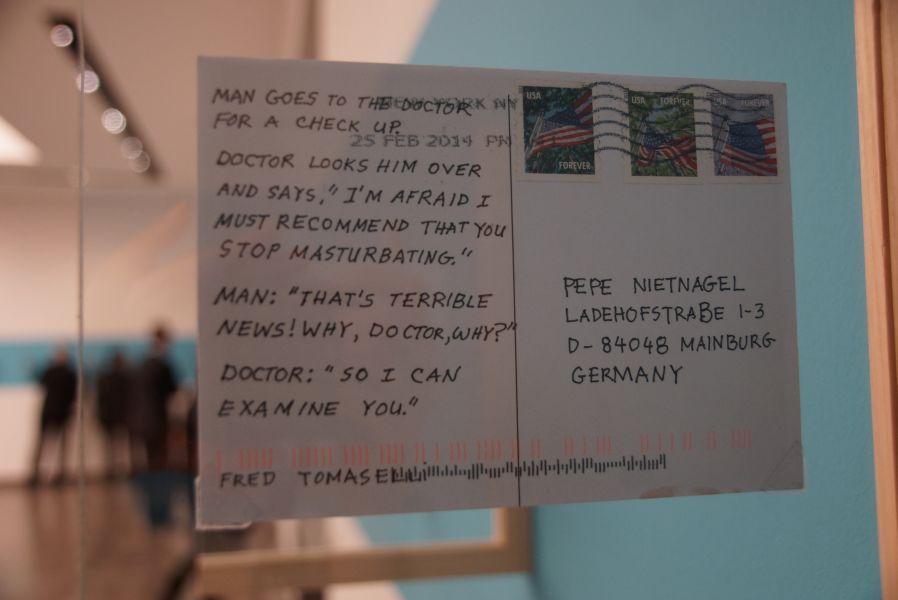 MAN GOES TO THE DOCTOR
FOR A CHECK UP.
NEW YORK NY
25 FEB 2014 PM
DOCTOR LOOKS HIM OVER
AND SAYS, "I'M AFRAID I
MUST RECOMMEND THAT YOU
STOP MASTURBATING."
MAN: "THAT'S TERRIBLE
NEWS! WHY, DOCTOR, WHY?"
DOCTOR: "SO I CAN
EXAMINE YOU."
FRED TOMASELLI
USA
FOREVER
USA FOREVER
FOREVER
PEPE NIETNAGEL
LADEHOFSTRAßE 1-3
D-84048 MAINBURG
GERMANY